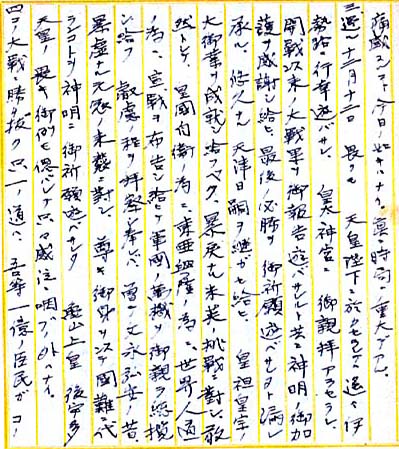 痛感スルコト今日ノ如キハナイ。真ニ時局ハ重大デアル。
三週、十二月十二日 畏クモ 天皇陛下ニ於カセラレテハ遙々伊
勢路ニ行幸遊バサレ 皇太神宮ニ御親拝アラセラレ、
開戦以来ノ大戦果ヲ御報告遊バサレルト共ニ神明ノ御加
護ヲ感謝シ給ヒ、最後ノ必勝ヲ御祈願遊バサレタト漏レ
承ル。悠久ナル天津日嗣ヲ継ガセ給ヒ、皇祖皇宗ノ
大御業ヲ成就シ給フベク、暴戻ナル米英ノ挑戦ニ対シ、敢
然トシテ、皇国自衛ノ為ニ、東亜興隆ノ為ニ、世界人道
ノ為ニ、宣戦ヲ布告シ給ヒ、軍国ノ万機ヲ御親ラ総攬
シ給フ 叡慮ノ程ヲ拝察シ奉ルハ、曽テ文永弘安ノ昔、
暴虐ナル元寇ノ来襲ニ対シ、尊キ御身ヲ以テ国難ニ代
ランコトヲ神明ニ御祈願遊バサレタ 亀山上皇 後宇多
天皇ノ畏キ御例モ偲バレテ只々感泣ニ咽ブノ外ハナイ。
四、コノ大戦ニ勝チ抜ク只一ノ道ハ、吾等一億ノ臣民ガコノ